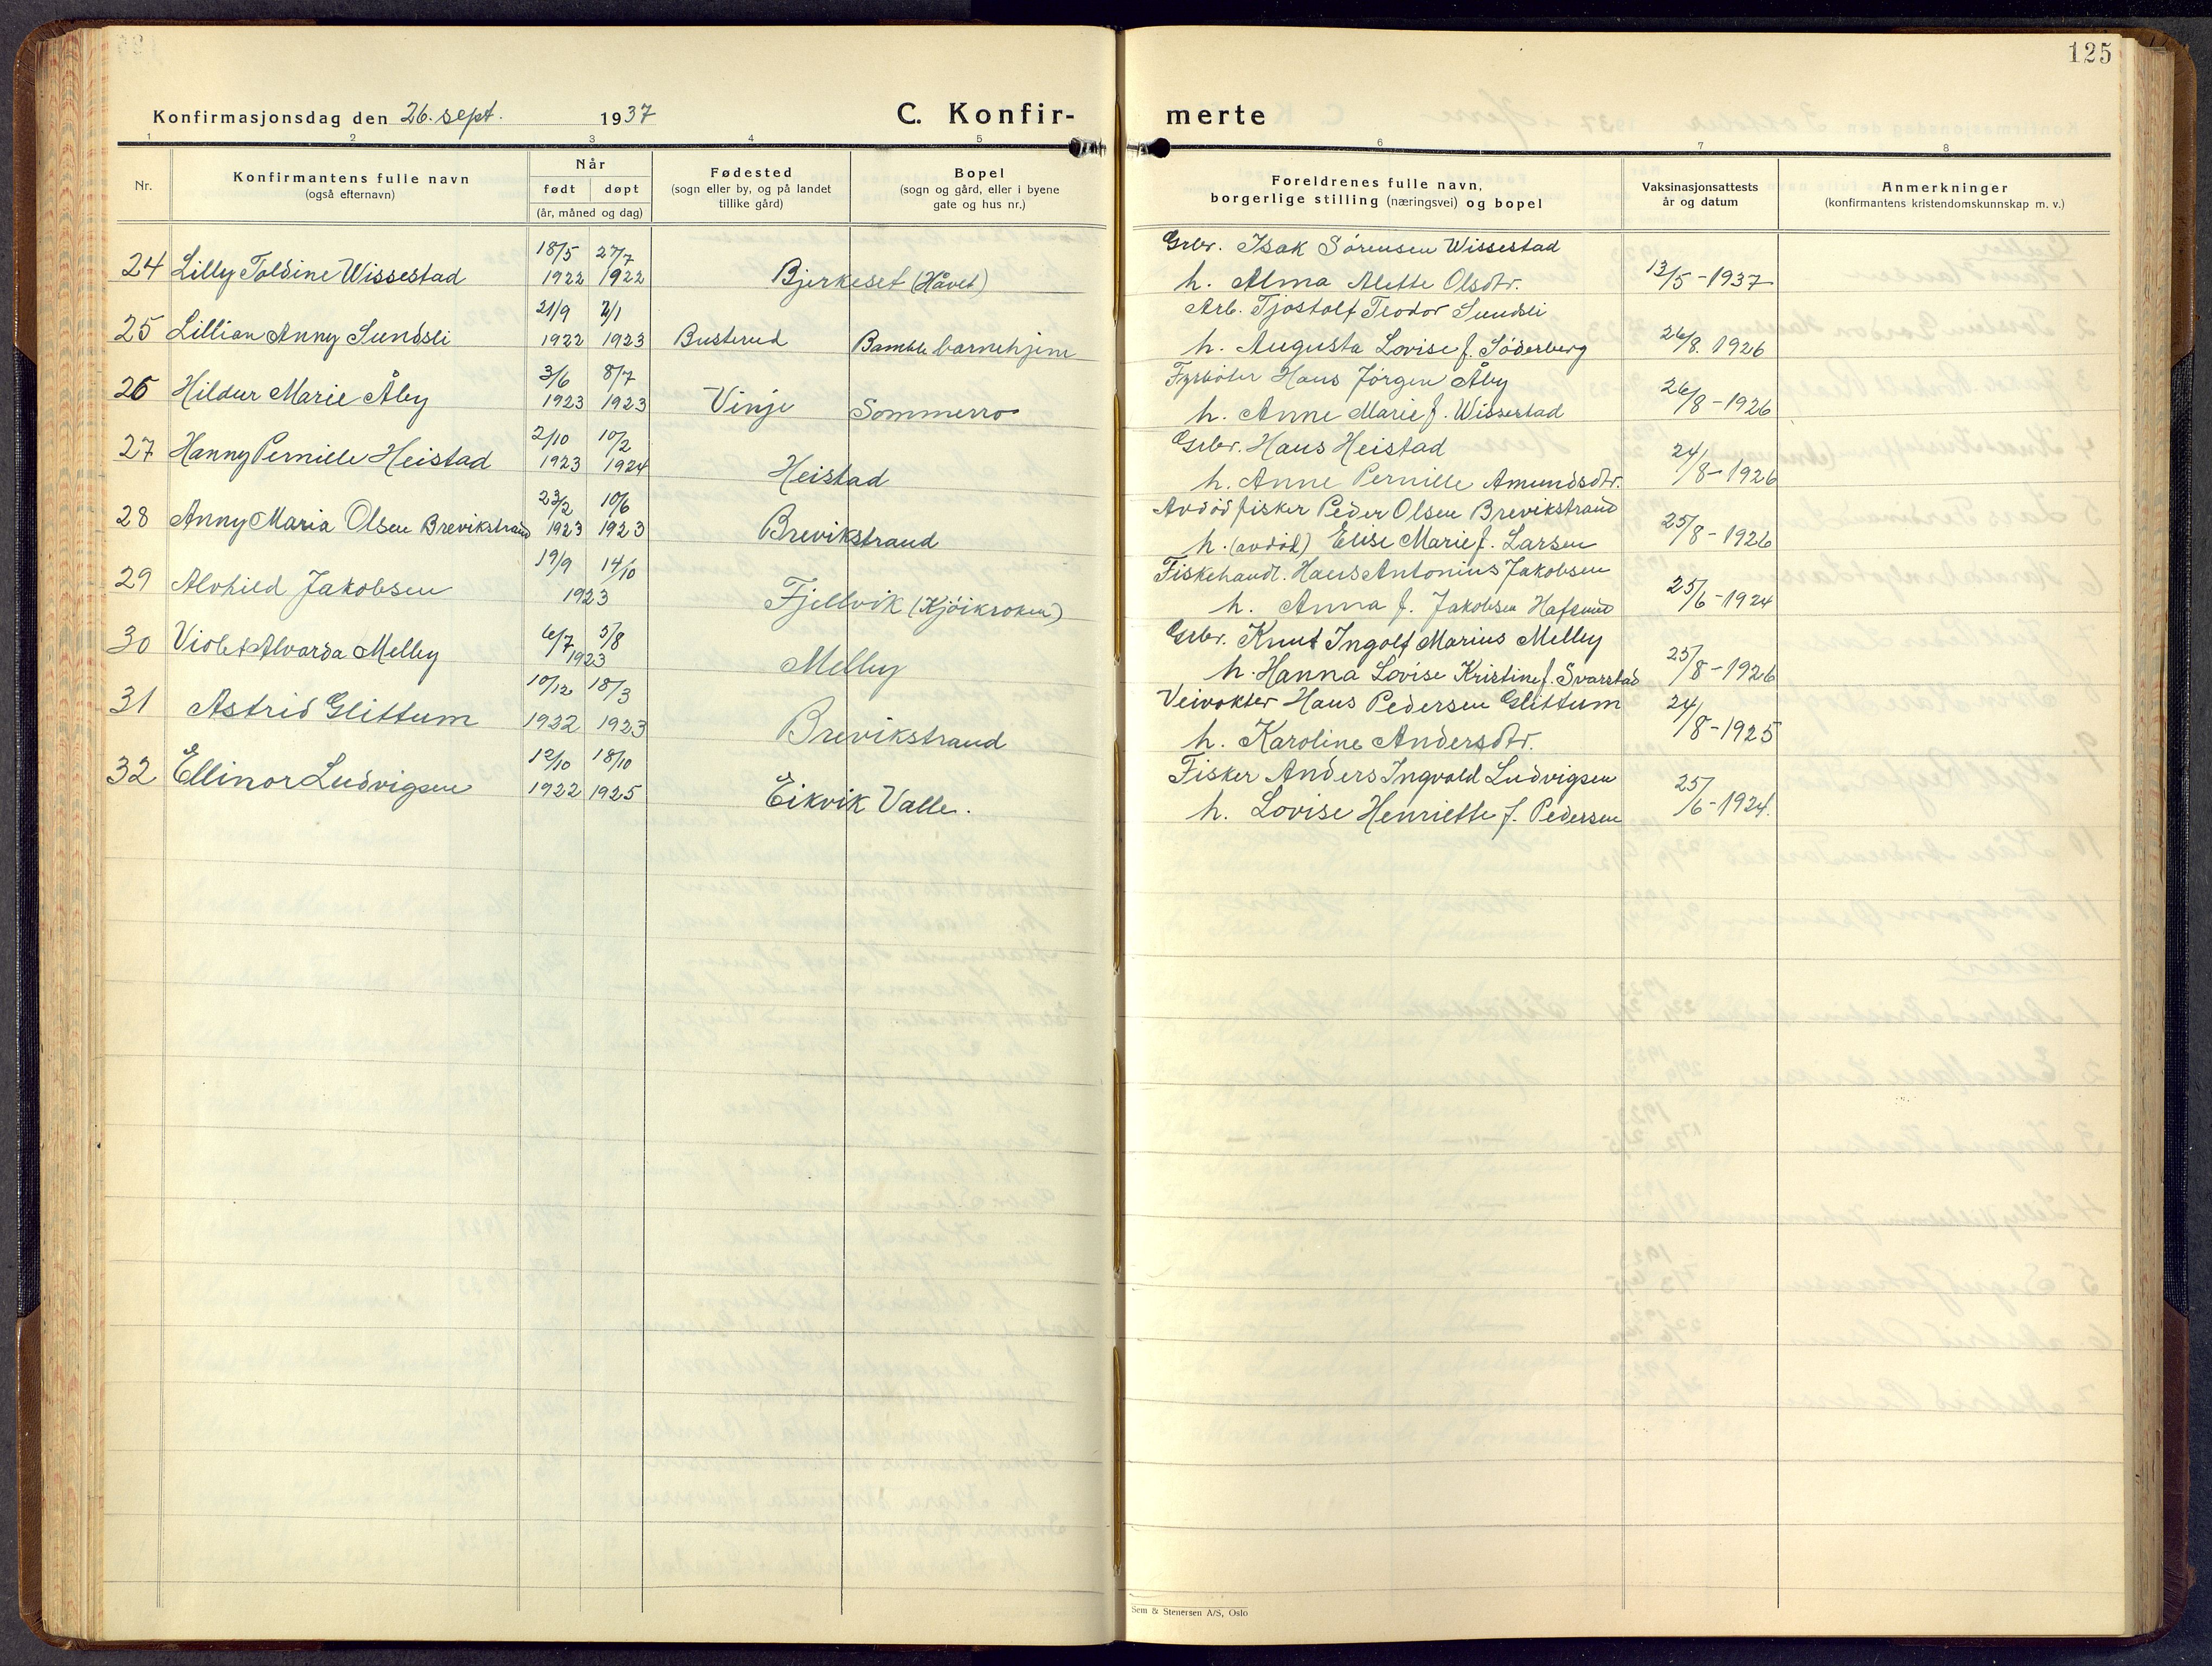 125
Konfirmasjonsdag den 26. sept. 1937
C. Konfir-
merte
1 2 3 4 5 6 7 8
Nr.
Konfirmantens fulle navn
(også efternavn)
Når
født døpt
(år, måned og dag)
Fødested
(sogn eller by, og på landet
tillike gård)
Bopel
(sogn og gård, eller i byene
gate og hus nr.)
Foreldrenes fulle navn,
borgerlige stilling (næringsvei) og bopel
Vaksinasjonsattests
år og datum
Anmerkninger
(konfirmantens kristendomskunnskap m. v.)
18/5 27/7 Grbr. Isak Sørensen Wissestad
24 Lilly Toldine Wissestad 1922 1922 Bjerkeset (Håvet) h. Alma Alette Olsdtr. 13/5-1937
21/9 7/1 Arb. Tjostolf Teodor Sundsli
25 Lillian Anny Sundsli 1922 1923 Busterud Bamble barnehjem h. Augusta Lovise f. Söderberg 26/8. 1926
3/6 8/7 Fyrbøter Hans Jørgen Åby
26 Hildur Marie Åby 1923 1923 Vinje Sommerro h. Anne Marie f. Wissestad 26/8-1926
2/10 10/2 Grbr. Hans Heistad
27 Hanny Pernille Heistad 1923 1924 Heistad h. Anne Pernille Amundsdtr. 24/8-1926
23/2 10/6 Avdød fisker Peder Olsen Brevikstrand
28 Anny Maria Olsen Brevikstrand 1923 1923 Brevikstrand h. (avdød) Elise Marie f. Larsen 25/8-1926
19/9 14/10 Fiskehandl. Hans Antonius Jakobsen
29 Alvhild Jakobsen 1923 Fjellvik (Kjøikroken) h. Anna f. Jakobsen Hafsund 25/6-1924
6/7 5/8 Grbr. Knut Ingolf Marius Melby
30 Violet Alvarda Melby 1923 Melby h. Hanna Lovise Kristine f. Svarstad 25/8-1926
10/12 18/3 Veivokter Hans Pedersen Glittum
31 Astrid Glittum 1922 1923 Brevikstrand h. Karoline Andersdtr. 24/8-1925
12/10 18/10 Fisker Anders Ingvald Ludvigsen
32 Ellinor Ludvigsen 1922 1925 Eikvik Valle. h. Lovise Henriette f. Pedersen 25/6-1924.
Sem & Stenersen A/S, Oslo